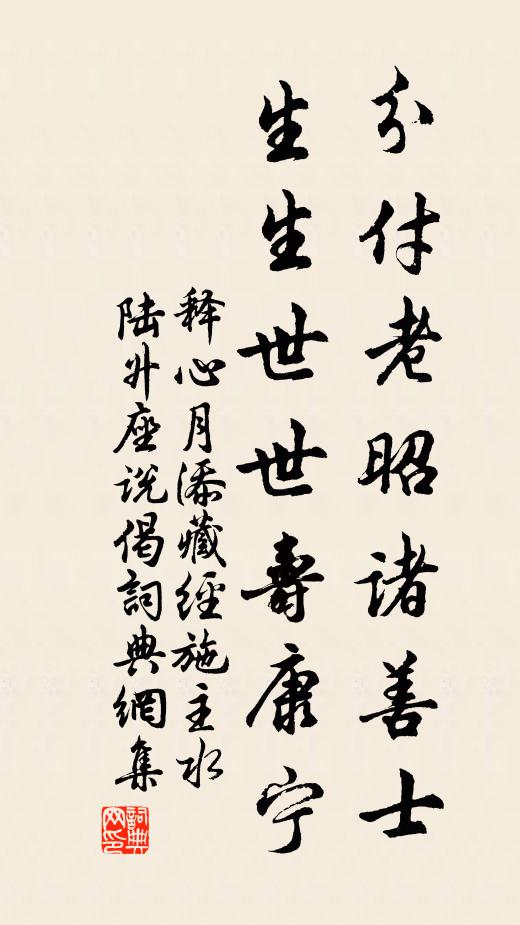 分付老昭诸善士
生生世世壽康宁
释心月添藏經施主水
陆升座说偈詞典網集
詞典网印